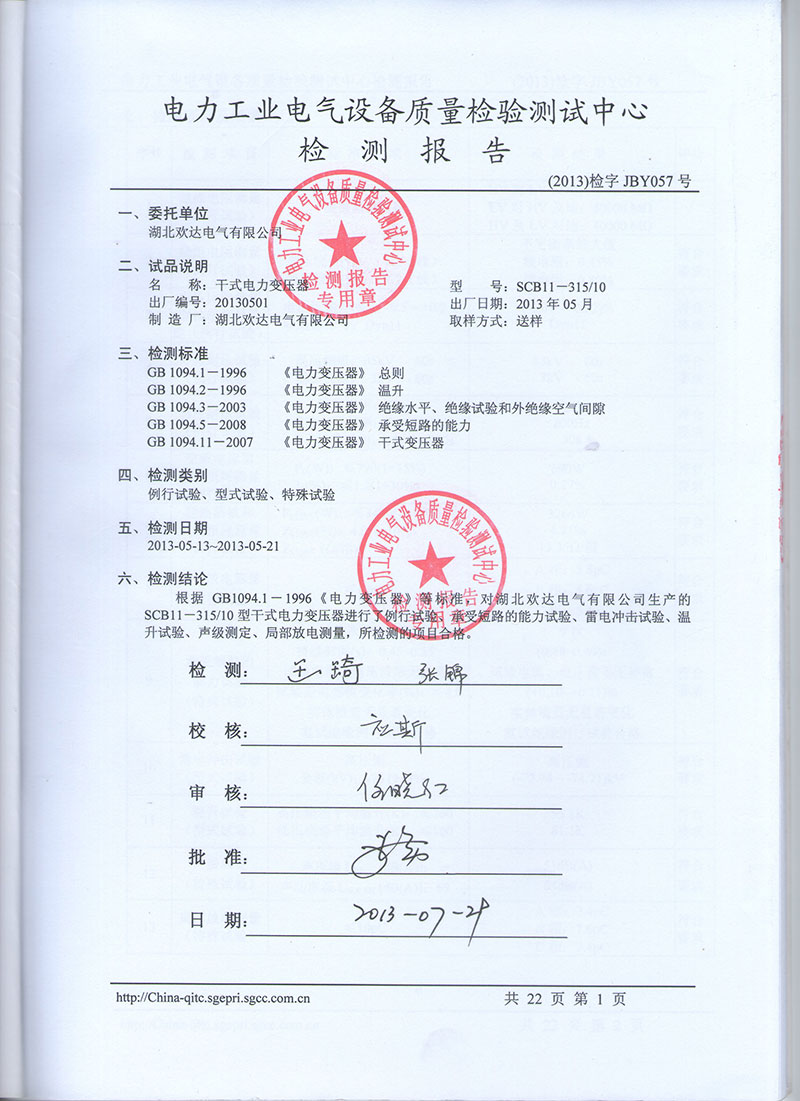 电力工业电气设备质量检验测试中心
检 测 报 告
(2013)检字 JBY057 号
一、委托单位
湖北欢达电气有限公司
二、试品说明
名 称：干式电力变压器 型 号：SCB11－315/10
出厂编号：20130501 出厂日期：2013 年 05 月
制 造 厂：湖北欢达电气有限公司 取样方式：送样
三、检测标准
GB 1094.1－1996 《电力变压器》 总则
GB 1094.2－1996 《电力变压器》 温升
GB 1094.3－2003 《电力变压器》 绝缘水平、绝缘试验和外绝缘空气间隙
GB 1094.5－2008 《电力变压器》 承受短路的能力
GB 1094.11－2007 《电力变压器》 干式变压器
四、检测类别
例行试验、型式试验、特殊试验
五、检测日期
2013-05-13~2013-05-21
六、检测结论
根据 GB1094.1－1996《电力变压器》等标准，对湖北欢达电气有限公司生产的
SCB11－315/10 型干式电力变压器进行了例行试验、承受短路的能力试验、雷电冲击试验、温
升试验、声级测定、局部放电测量，所检测的项目合格。
电力工业电气设备质量检验测试中心
检测报告
专用章
电力工业电气设备质量检验测试中心
检测报告
专用章
检 测：
校 核：
审 核：任晓红
批 准：
日 期：
http://China-qitc.sgepri.sgcc.com.cn 共 22 页 第 1 页